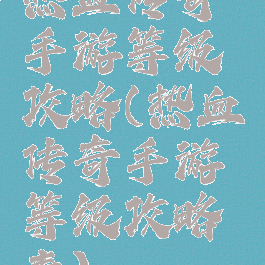 热血传奇
手游等级
攻略(热血
传奇手游
等级攻略